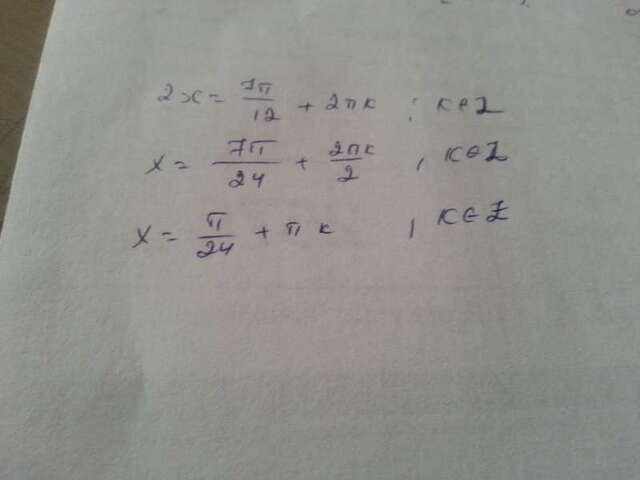 2x = 7π/12 + 2πk ; k∈Z
x = 7π/24 + 2πk/2 , k∈Z
x = π/24 + πk , k∈Z